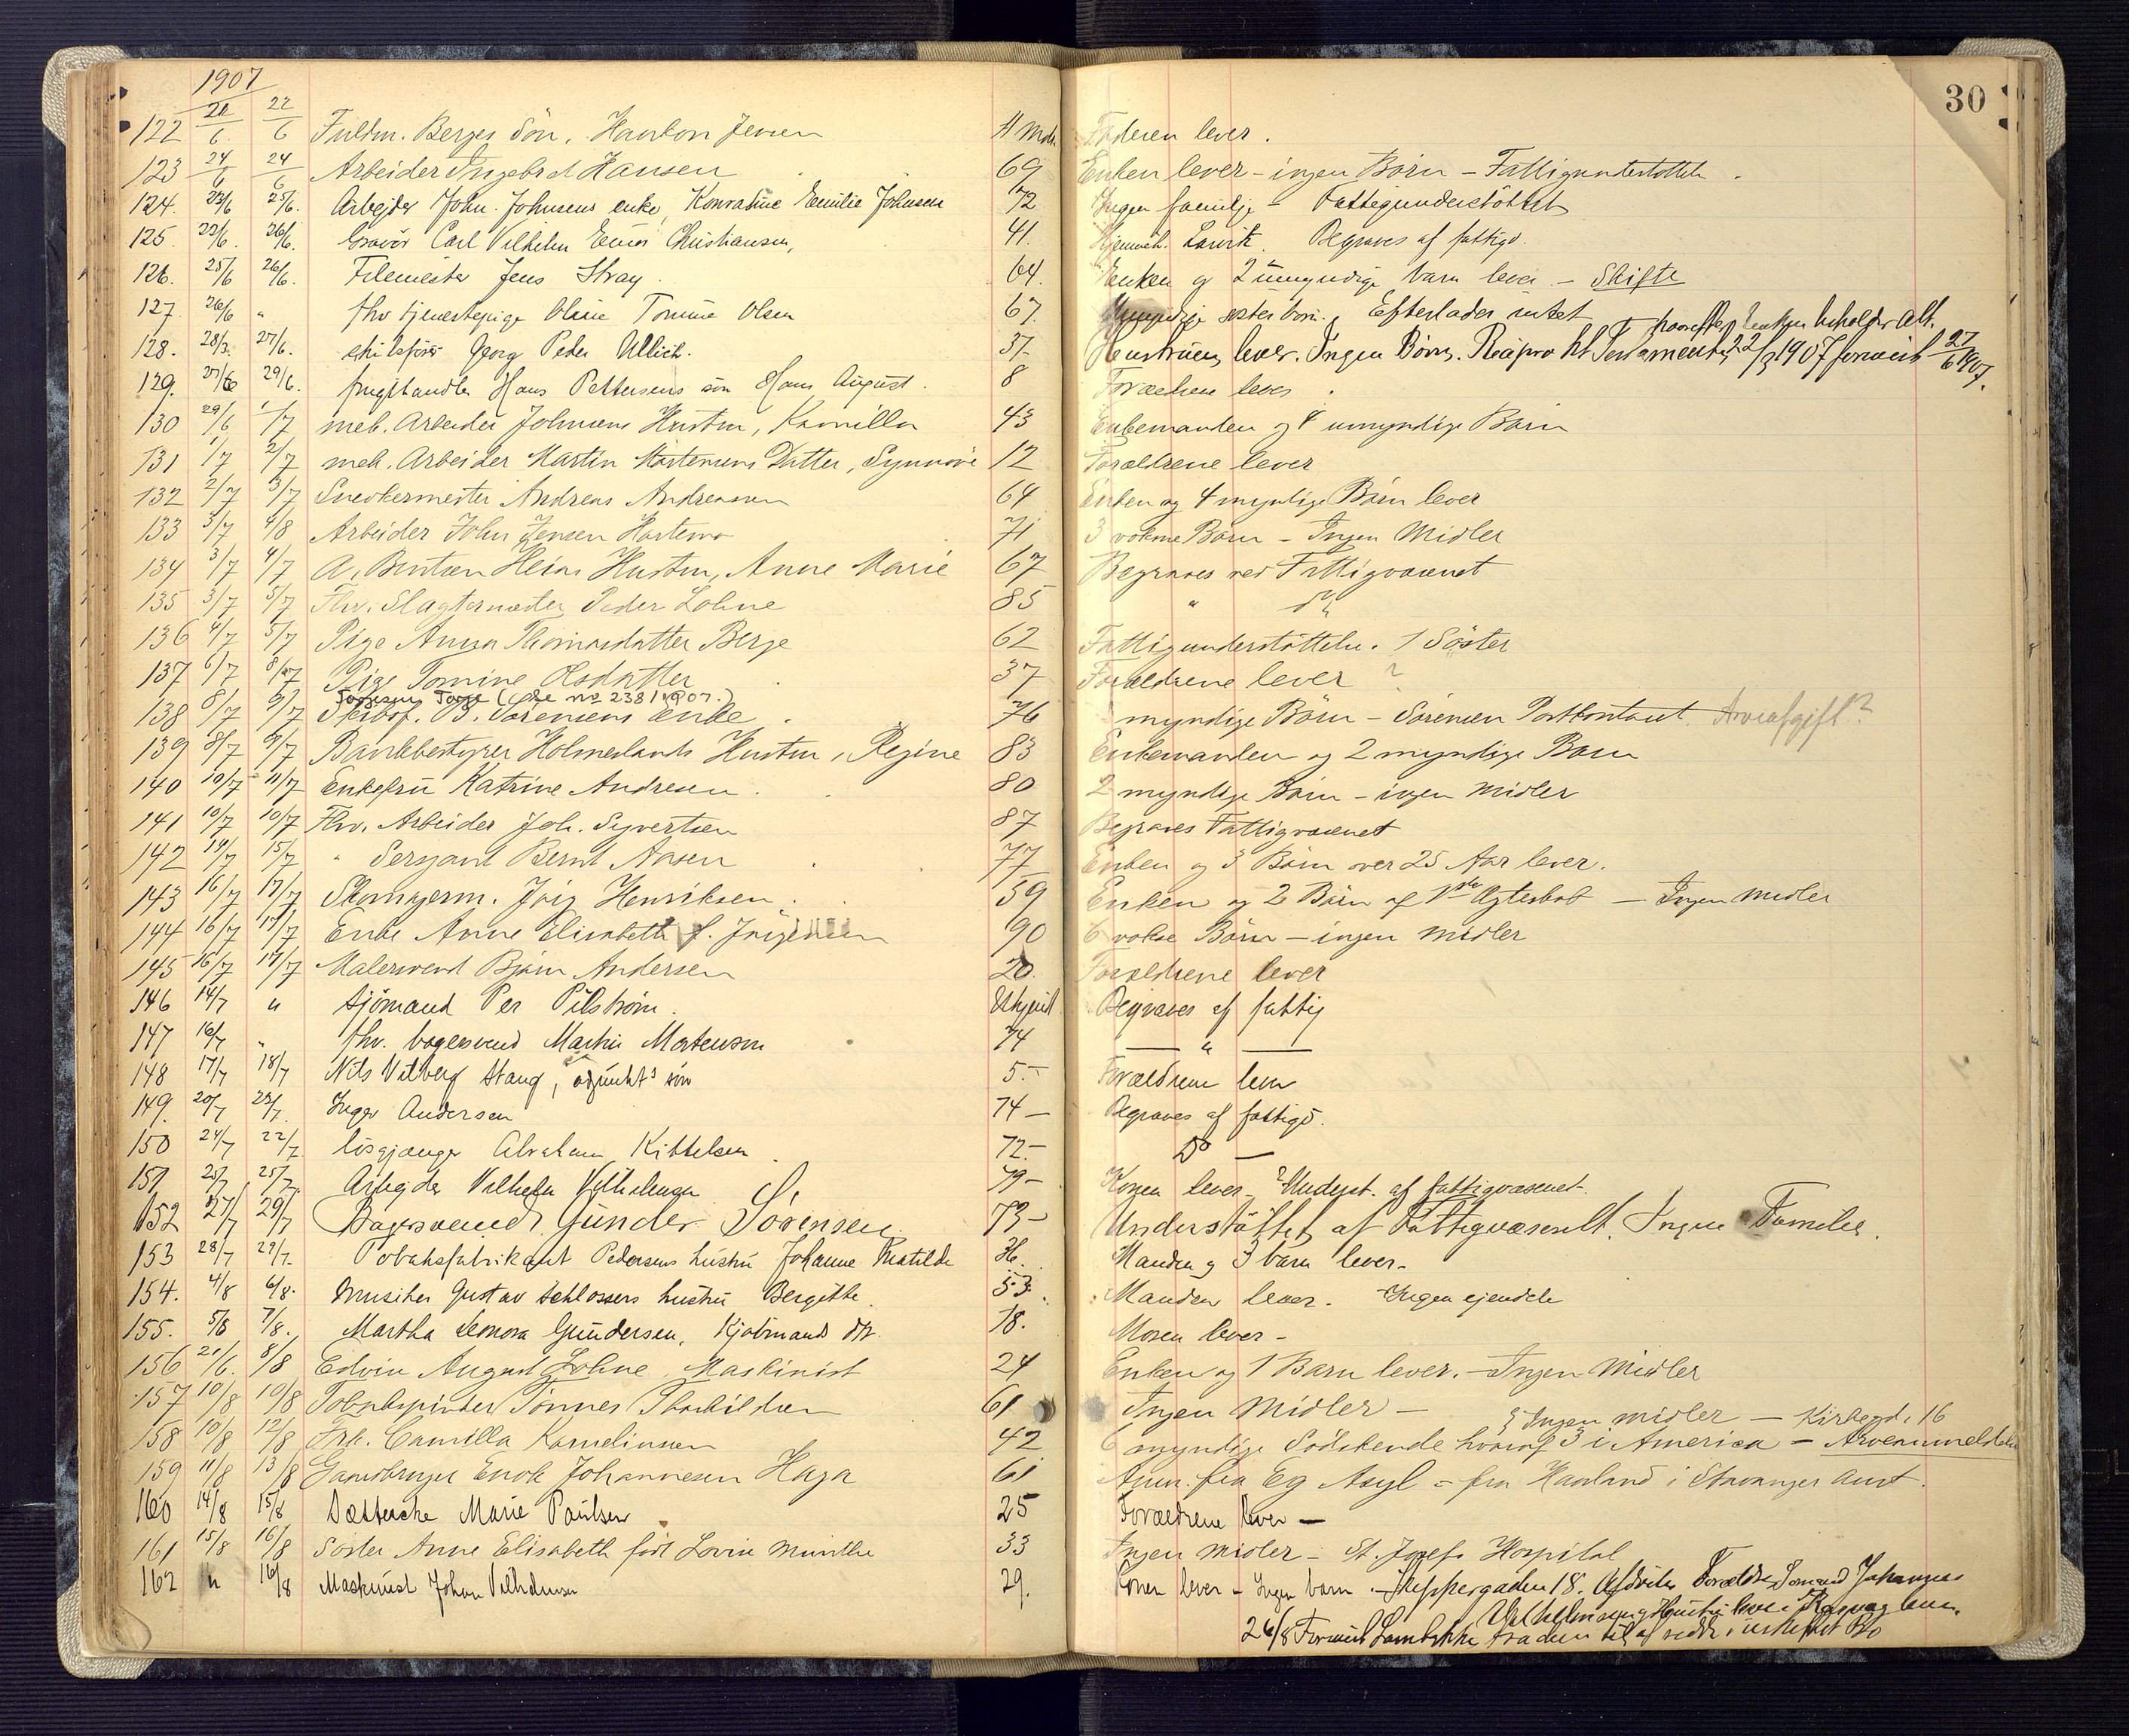 1907
30
122 20/6 22/6 Fuldm. Berges Sön, Haakon Jensen 11 Mdr. Faderen lever.
123 24/6 24/6 Arbeider Ingebret Hansen 69 Enken lever - ingen Börn - Fattigunderstöttelse
124. 23/6 25/6. Arbejder John. Johnsens enke, Konradine Emilie Johnsen 72 Ingen familje - Fattigunderstöttet
125. 22/6. 26/6. Gravör Carl Vilhelm Christiansen, 41. Hjemmeh. Larvik. Begraves af fattigv.
126. 25/6 26/6. Filemester Jens Stray. 64. Enken og 2 umyndige barn lever. - Skifte
127. 26/6 " fhv tjenestepige Olsen 67. söster börn. Efterlader intet
128. 28/3. 27/6. skibsförer Georg Peder Ullich. 37. Hustruen lever. Ingen Börn. Testamente 22/3 1907 forevist 27/6 1907.
hvorefter Enken beholder Alt.
129. 27/6 29/6. frugthandler Hans Pettersens sön Hans August. 8 Forældrene lever.
130 29/6 1/7 meh. Arbeider Johnsens Hustru, Kamilla 43 Enkemanden og 4 umyndige Börn
131 1/7 2/7 meh. Arbeider Martin Mortensens Datter, Synnöve 12 Forældrene lever
132 2/7 3/7 Snedkermester Andreas Andreassen 64 Enken og 4 myndige Börn lever
133 3/7 4/8 Arbeider John Jensen 71 3 voksne Börn - Ingen Midler
134 3/7 4/7 A. Bentsen Heias Hustru, Anne Marie 67 Begraves ved Fattigvæsenet
135 3/7 5/7 Fhv. Slagtermester Peder Lohne 85 " do
136 4/7 5/7 Pige Anna Thomasdatter Berge 62 Fattigunderstöttelse. 1 Söster
137 6/7 8/7 Pige Tomine Olsdatter 37 Forældrene lever ?
Torjesen Torge (se no 238 1907.)
138 8/7 9/7 Skibsf. B. Sörensens enke. 76 myndige Börn - Sörensen Postkontoret. Arveafgift?
139 8/7 9/7 Bankbestyrer Holmeslands Hustru, Regine 83 Enkemanden og 2 myndige Börn
140 10/7 11/7 Enkefru Katrine Andresen. 80 2 myndige Börn - ingen Midler
141 10/7 10/7 Fhv. Arbeider Joh. Syvertsen 87 Begraves Fattigvæsenet
142 14/7 15/7 " Sergant Bernt Aasen 77 Enken og 3 Börn over 25 Aar lever.
143 16/7 17/7 Skomagerm. Jörg Henriksen. 59 Enken og 2 Börn af 1ste Ægteskab - Ingen Midler
144 16/7 17/7 Enke Anne Elisabeth f. Jörgensen 90 6 voksne Börn - ingen midler
145 16/7 17/7 Malersvend Björn Andersen 20. Forældrene lever
146 14/7 " Sjömand Per Pilström. Ukjendt. Begraves af fattig
147 16/7 " fhv. bagersvend Martin Mortensen 74 — " —
148 17/7 18/7 Nils Vilberg Stang, adjunkts sön 5.- Forældrene lever
149. 20/7 22/7. Inger Andersen 74 - Begraves af fattigv.
150 21/7 22/7. lösgjænger Abraham Kittelsen 72.- Do —
151 25/7 25/7. Arbejder Vilhelm Vilhelmsen 79 - Konen lever. Underst. af fattigvæsenet.
152 27/7 29/7 Bagersvend Gunder Sörensen. 73 - Understöttet af Fattigvæsenet. Ingen Familie.
153 28/7 29/7. Tobaksfabrikant Pedersens hustru Johanne Matilde 36. Manden og 3 barn lever.
154. 4/8 6/8. Musiker Gustav Schlossers hustru Bergitte 53. Manden lever. Ingen ejendele
155. 5/8 7/8. Martha Leonora Gundersen, Kjöbmands dtr. 18. Moren lever -
156 21/6. 8/8 Edvin August Lohne, Maskinist 24 Enken og 1 Barn lever. - Ingen Midler
157 10/8 10/8 Tobakspinder Tönnes Thorkildsen 61 Ingen Midler -
158 10/8 12/8 Frk. Camilla Kornelinsen 42 6 myndige Södskende hvoraf 3 i America - Arveanmeldelse
Ingen midler - Kirkegd. 16
159 11/8 13/8 Gaardbruger Enok Johannesen Haga 61 Anm. fra Eg Asyl = fra Havland i Stavanger Amt.
160 14/8 15/8 Marie Paulsen 25 Forældrene lever -
161 15/8 16/8 Söster Anne Elisabeth född Lovise Munthe 33 Ingen midler - St. Josefs Hospital
162 " 16/8 Maskinist Johan Vilhelmsen 29. Konen lever - Ingen barn. - Skippergaden 18. Afdödes Forældre Johannes
Vilhelmsen og Hustru lever i
26/8 Forevist til at sidde i uskiftet Bo